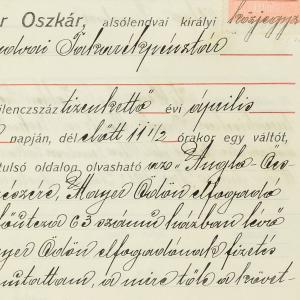 r Oszkár, alsólendvai királyi közjegyz
ndvai Takarékpénztár
ilenczszáz tizenkettő évi április
napján, dél előtt 11 1/2 órakor egy váltót,
tulsó oldalon olvasható az „Anglo-Ös
részére, Mayer Ödön elfogadó
főutcza 63 számu házban levő
yer Ödön elfogadónak fizetés
mutattam, a mire tőle a követ-